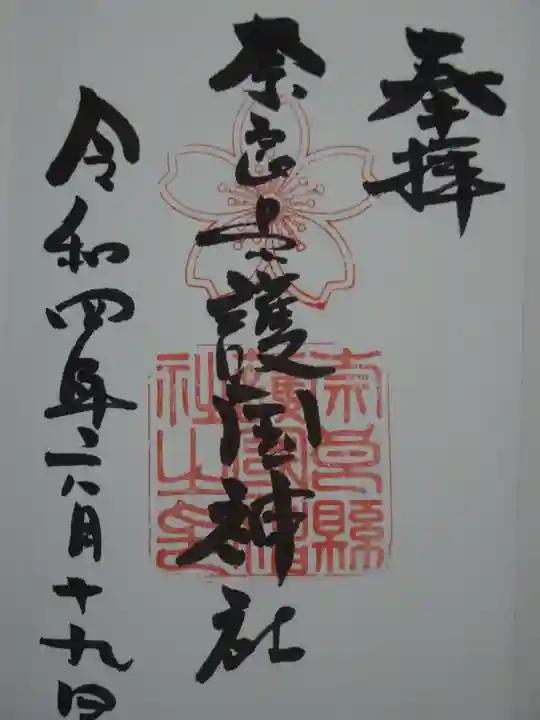 奉拝
奈良県護国神社
令和四年六月十九日
奈良縣
護國神
社之印